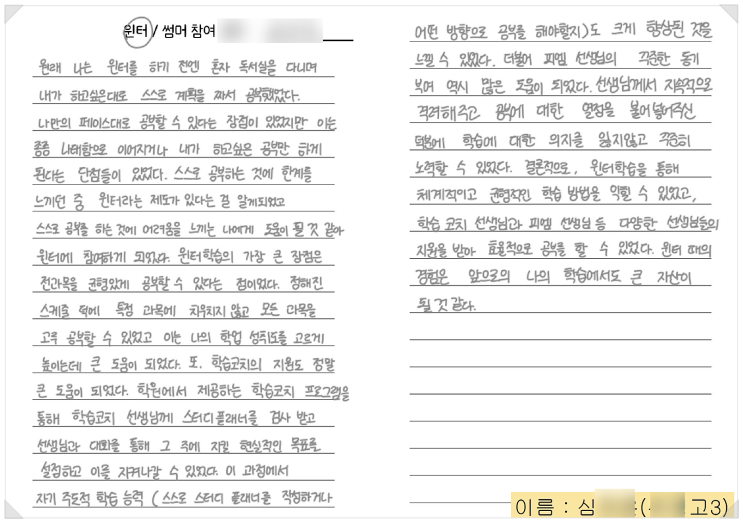 윈터 / 썸머 참여
원래 나는 윈터를 하기 전엔 혼자 독서실을 다니며
내가 하고싶은대로 스스로 계획을 짜서 공부했었다.
나만의 페이스대로 공부할 수 있다는 장점이 있었지만 이는
종종 나태함으로 이어지거나 내가 하고싶은 공부만 하게
된다는 단점들이 있었다. 스스로 공부하는 것에 한계를
느끼던 중 윈터라는 제도가 있다는 걸 알게되었고
스스로 공부를 하는 것에 어려움을 느끼는 나에게 도움이 될 것 같아
윈터에 참여하게 되었다. 윈터학습의 가장 큰 장점은
전과목을 균형있게 공부할 수 있다는 점이었다. 정해진
스케줄 덕에 특정 과목에 치우치지 않고 모든 과목을
고루 공부할 수 있었고 이는 나의 학업 성취도를 고르게
높이는데 큰 도움이 되었다. 또, 학습코치의 지원도 정말
큰 도움이 되었다. 학원에서 제공하는 학습코치 프로그램을
통해 학습코치 선생님께 스터디플래너를 검사 받고
선생님과 대화를 통해 그 주에 지킬 현실적인 목표를
설정하고 이를 지켜나갈 수 있었다. 이 과정에서
자기 주도적 학습 능력 ( 스스로 스터디 플래너를 작성하거나
어떤 방향으로 공부를 해야할지 ) 도 크게 향상된 것을
느낄 수 있었다. 더불어 피엠 선생님의 꾸준한 동기
부여 역시 많은 도움이 되었다. 선생님께서 지속적으로
격려해주고 공부에 대한 열정을 불어넣어주신
덕분에 학습에 대한 의지를 잃지않고 꾸준히
노력할 수 있었다. 결론적으로, 윈터학습을 통해
체계적이고 균형적인 학습 방법을 익힐 수 있었고,
학습 코치 선생님과 피엠 선생님 등 다양한 선생님들의
지원을 받아 효율적으로 공부를 할 수 있었다. 윈터 때의
경험은 앞으로의 나의 학습에서도 큰 자산이
될 것 같다.
이름 : 심 ( 고3)